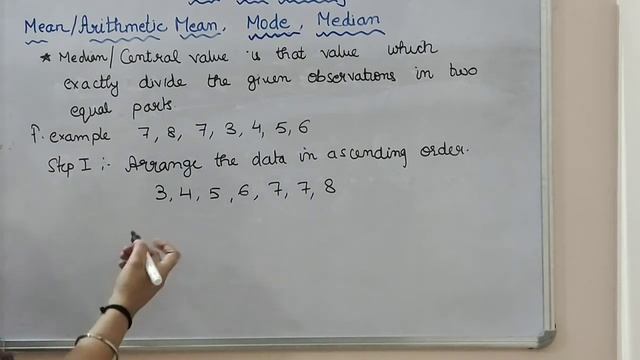 Mean/Arithmetic Mean, Mode, Median
* Median/Central value is that value which
exactly divide the given observations in two
equal parts
f. example 7, 8, 7, 3, 4, 5, 6
Step I :- Arrange the data in ascending order.
3, 4, 5, 6, 7, 7, 8